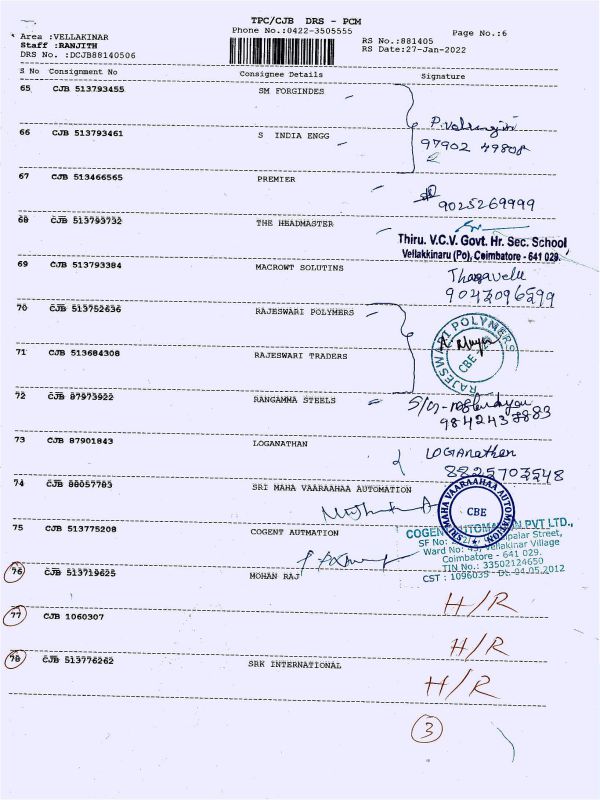 TPC/CJB DRS - PCM
Area :VELLAKINAR Phone No.:0422-3505555 Page No.:6
Staff :RANJITH RS No.:881405
DRS No. :DCJB88140506 RS Date:27-Jan-2022
S No Consignment No Consignee Details Signature
65 CJB 513793455 SM FORGINDES
66 CJB 513793461 S INDIA ENGG
97902 49808
67 CJB 513466565 PREMIER
9025269999
68 CJB 513793732 THE HEADMASTER
Thiru. V.C.V. Govt. Hr. Sec. School,
Vellakkinaru (Po), Coimbatore - 641 029.
69 CJB 513793384 MACROWT SOLUTINS
Thagavelu
9042096299
70 CJB 513752636 RAJESWARI POLYMERS
RAJESWARI POLYMERS
CBE
71 CJB 513684308 RAJESWARI TRADERS
72 CJB 87973922 RANGAMMA STEELS
9842437883
73 CJB 87901843 LOGANATHAN
LOGANathan
8825703548
74 CJB 88057783 SRI MAHA VAARAAHAA AUTOMATION
SRI MAHA VAARAAHAA AUTOMATION
CBE
75 CJB 513775208 COGENT AUTMATION
COGENT AUTOMATION PVT LTD.,
SF No: Street,
Ward No: 43, Vellakinar Village
Coimbatore - 641 029.
TIN No.: 33502124650
CST : 1096035 Dt. 04.05.2012
76 CJB 513719625 MOHAN RAJ
H/R
77 CJB 1060307
H/R
78 CJB 513776262 SRK INTERNATIONAL
H/R
3